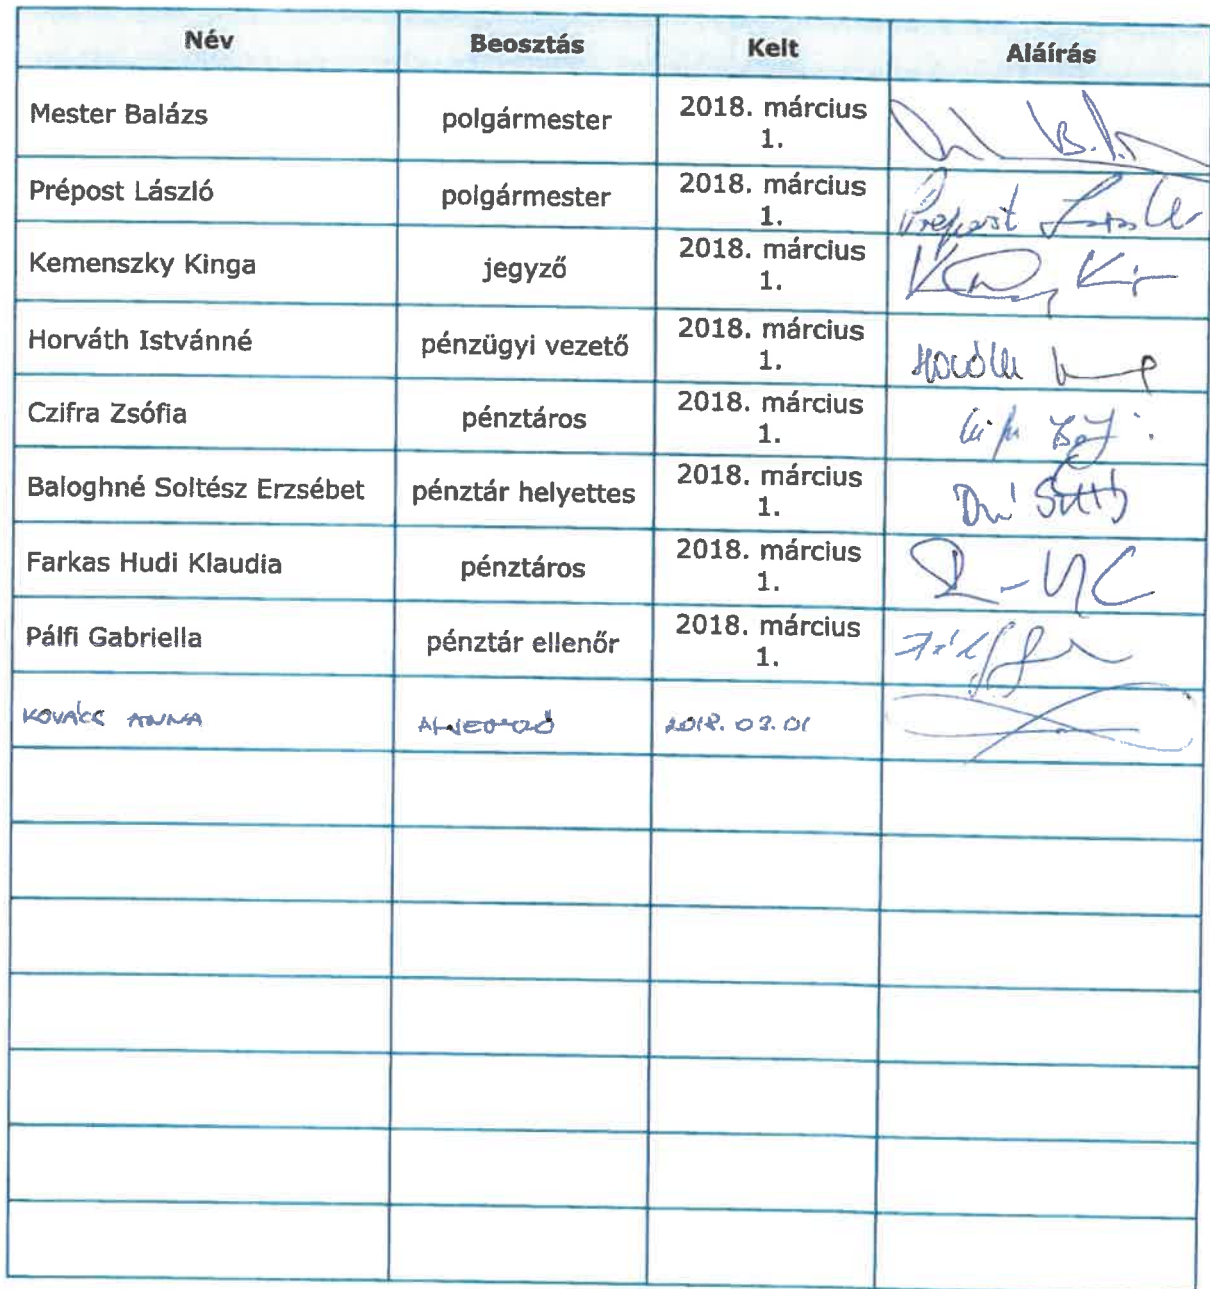 Név Beosztás Kelt Aláírás
Mester Balázs polgármester 2018. március
1.
Prépost László polgármester 2018. március
1. Prépost László
Kemenszky Kinga jegyző 2018. március
1.
Horváth Istvánné pénzügyi vezető 2018. március
1.
Czifra Zsófia pénztáros 2018. március
1.
Baloghné Soltész Erzsébet pénztár helyettes 2018. március
1.
Farkas Hudi Klaudia pénztáros 2018. március
1.
Pálfi Gabriella pénztár ellenőr 2018. március
1.
KOVÁCS ANNA ALJEGYZŐ 2018.03.01